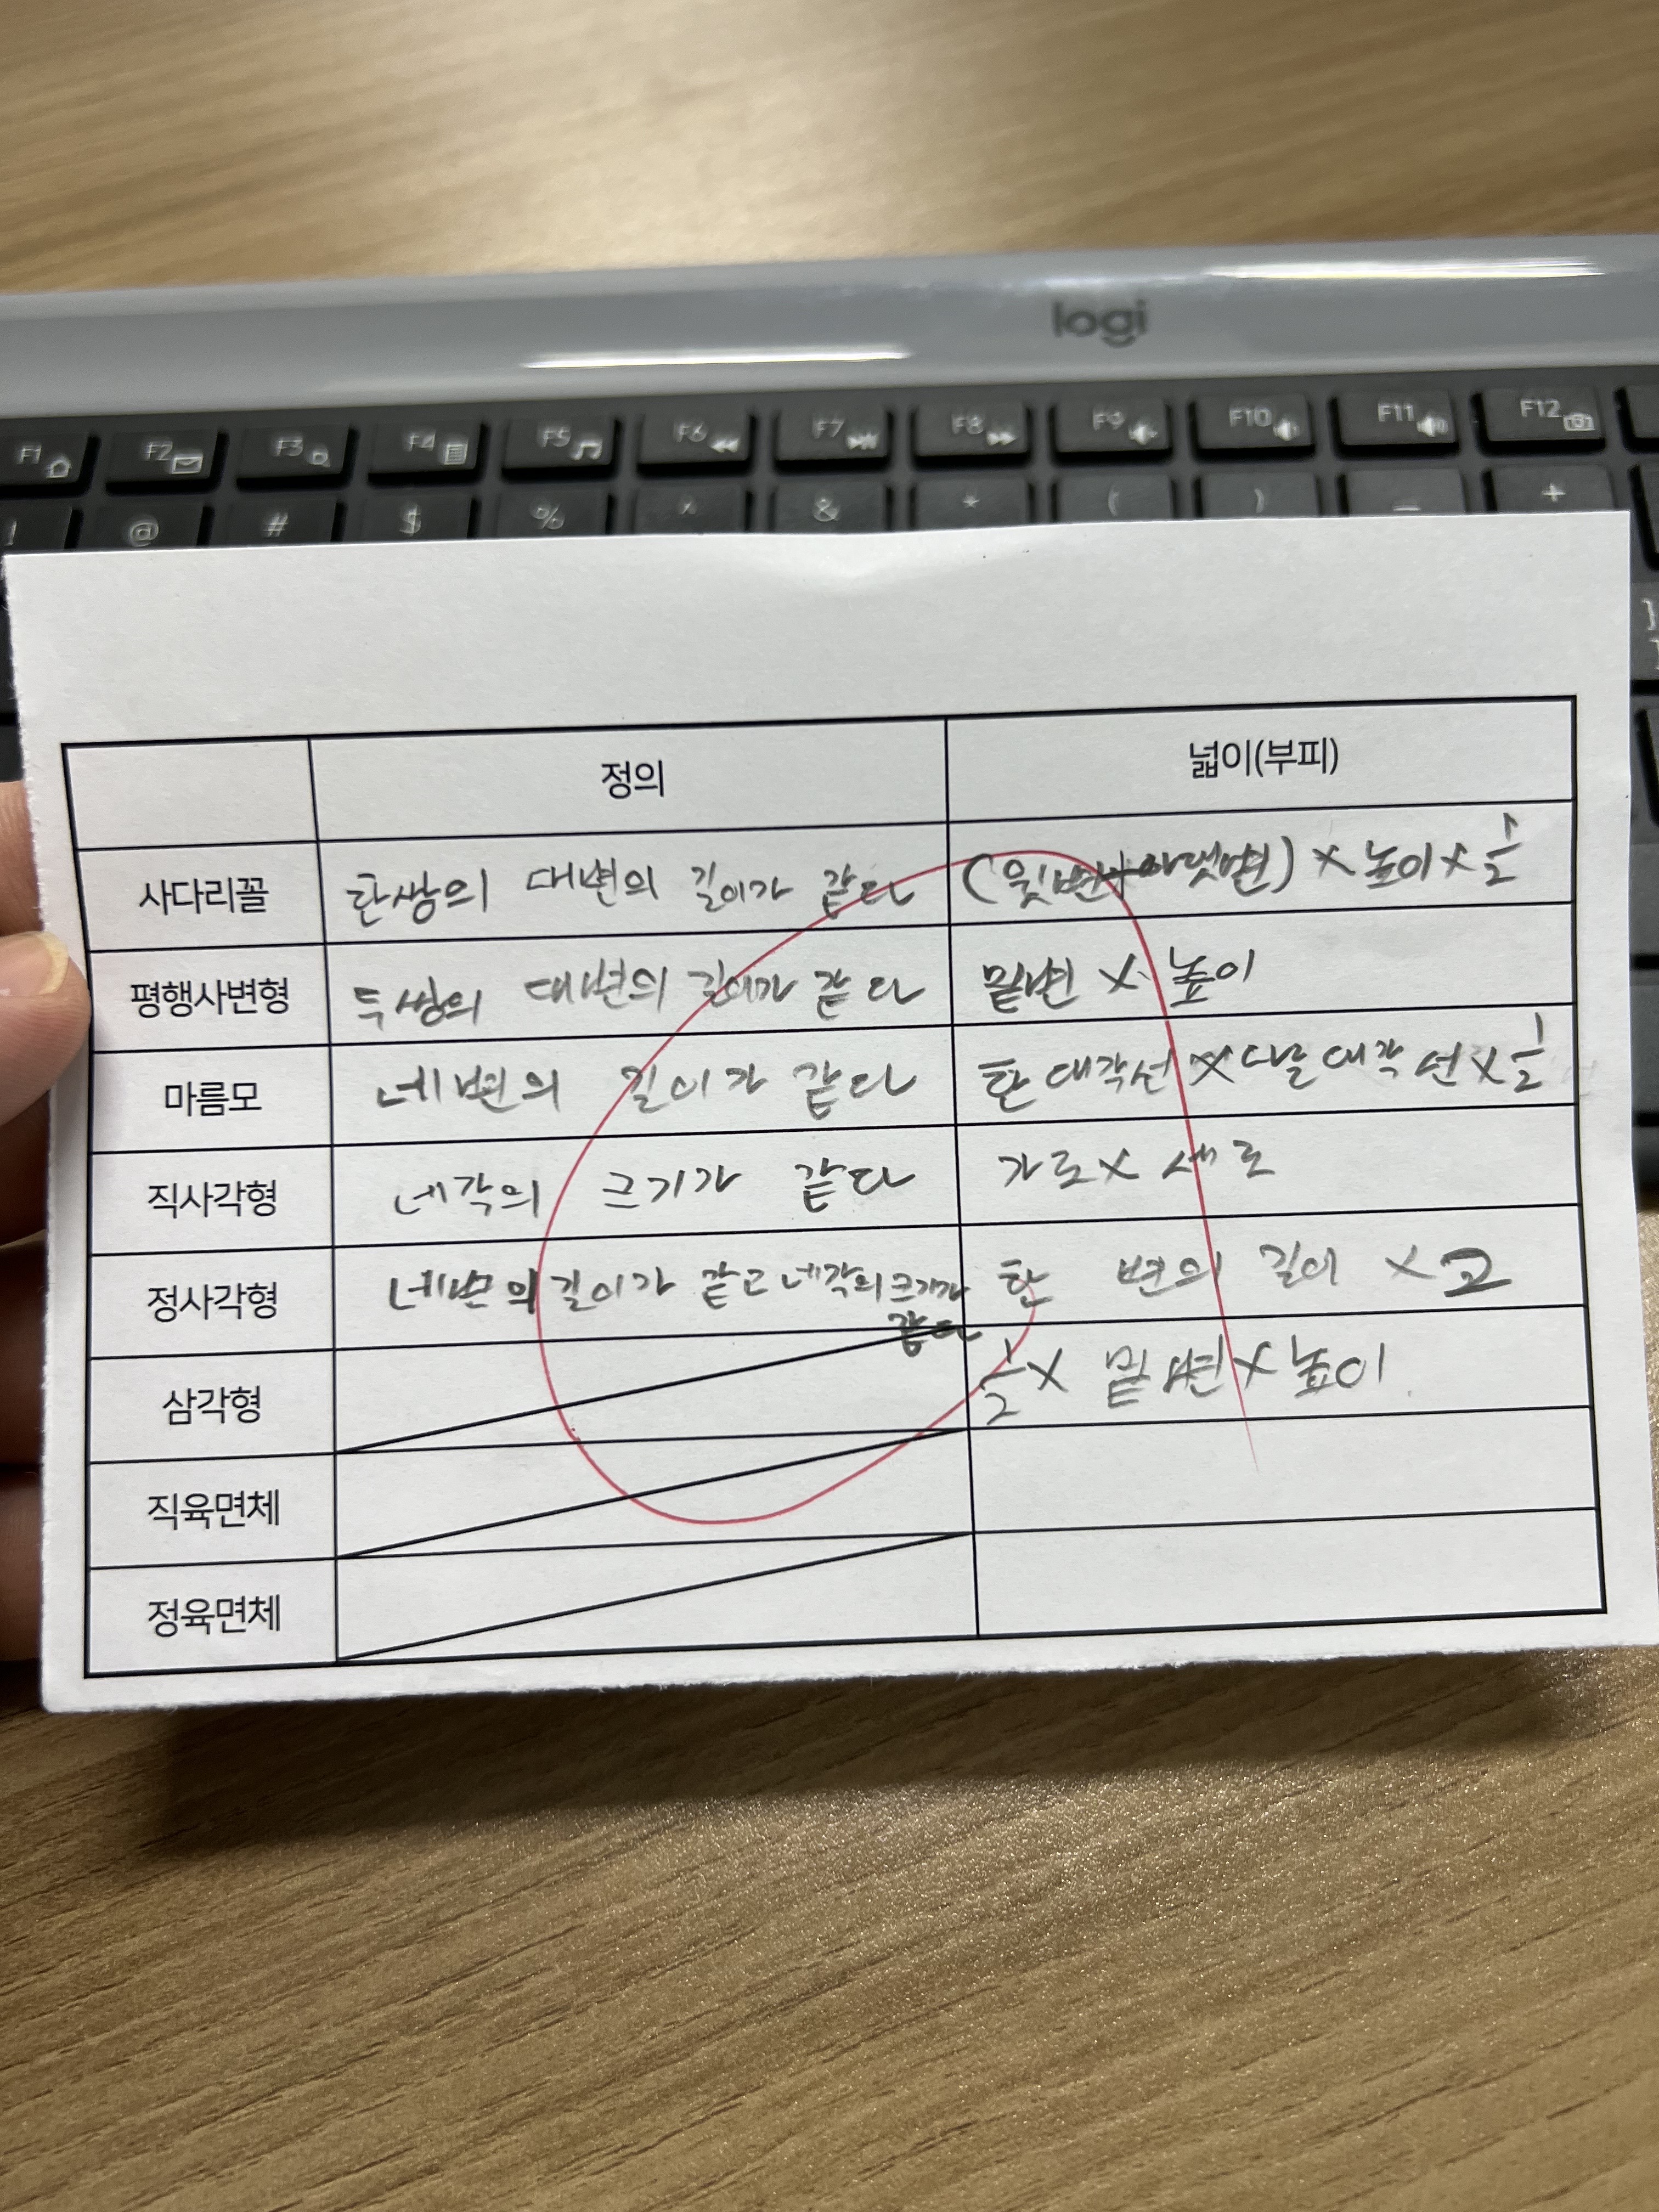 logi
F1 F2 F3 F4 F5 F6 F7 F8 F9 F10 F11 F12
! @ # $ % ^ & * ( ) _ +
정의 넓이(부피)
사다리꼴 한쌍의 대변의 길이가 같다 (윗변+아랫변) × 높이 × 1/2
평행사변형 두쌍의 대변의 길이가 같다 밑변 × 높이
마름모 네변의 길이가 같다 한 대각선 × 다른 대각선 × 1/2
직사각형 네각의 크기가 같다 가로 × 세로
정사각형 네변의 길이가 같고 네각의 크기가 한 변의 길이 ×
같다
삼각형 1/2 × 밑변 × 높이
직육면체
정육면체